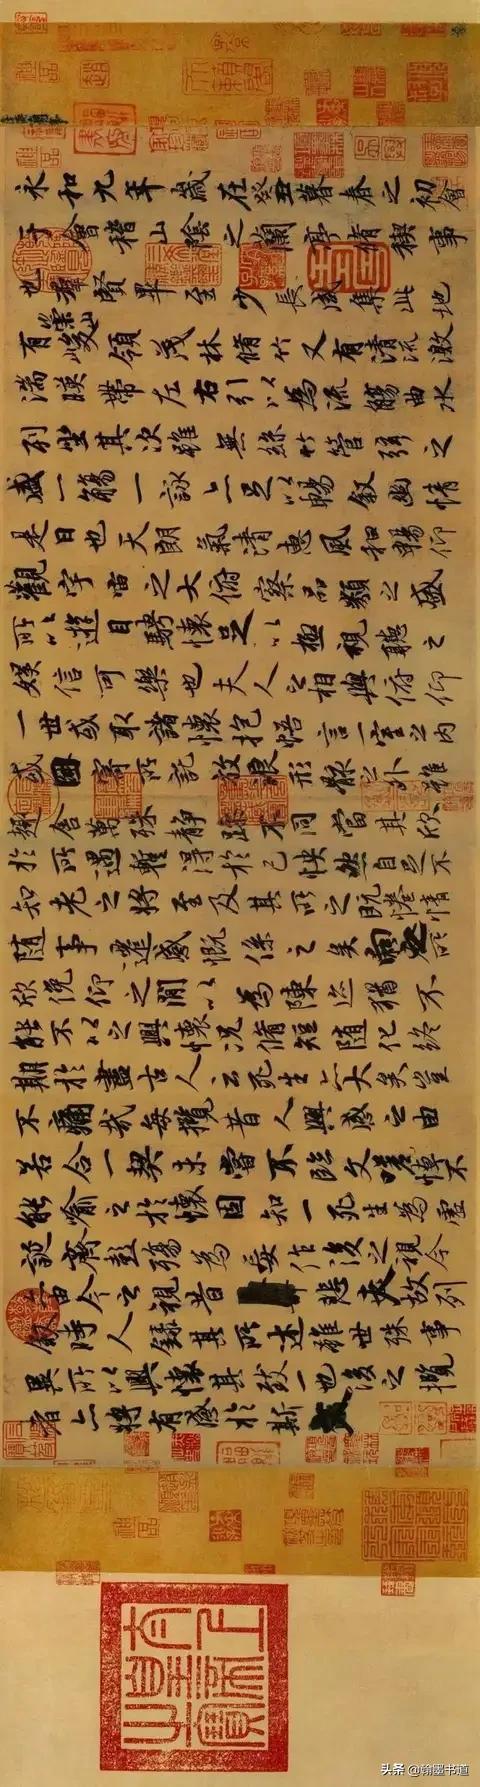 永和九年歲在癸丑暮春之初會
于會稽山陰之蘭亭脩稧事
也群賢畢至少長咸集此地
有崇山峻領茂林脩竹又有清流激
湍暎帶左右引以為流觴曲水
列坐其次雖無絲竹管弦之
盛一觴一詠亦足以暢叙幽情
是日也天朗氣清惠風和暢仰
觀宇宙之大俯察品類之盛
所以遊目騁懷足以極視聽之
娛信可樂也夫人之相與俯仰
一世或取諸懷抱悟言一室之內
或因寄所託放浪形骸之外雖
趣舍萬殊静躁不同當其欣
於所遇蹔得於己怏然自足不
知老之將至及其所之既惓情
随事遷感慨係之矣向之所
欣俛仰之間以為陳迹猶不
能不以之興懷況脩短随化終
期於盡古人云死生亦大矣豈
不痛哉每攬昔人興感之由
若合一契未嘗不臨文嗟悼不
能喻之於懷固知一死生為虛
誕齊彭殤為妄作後之視今
亦由今之視昔悲夫故列
叙時人錄其所述雖世殊事
異所以興懷其致一也後之攬
者亦將有感於斯文
头条 @翰墨书道